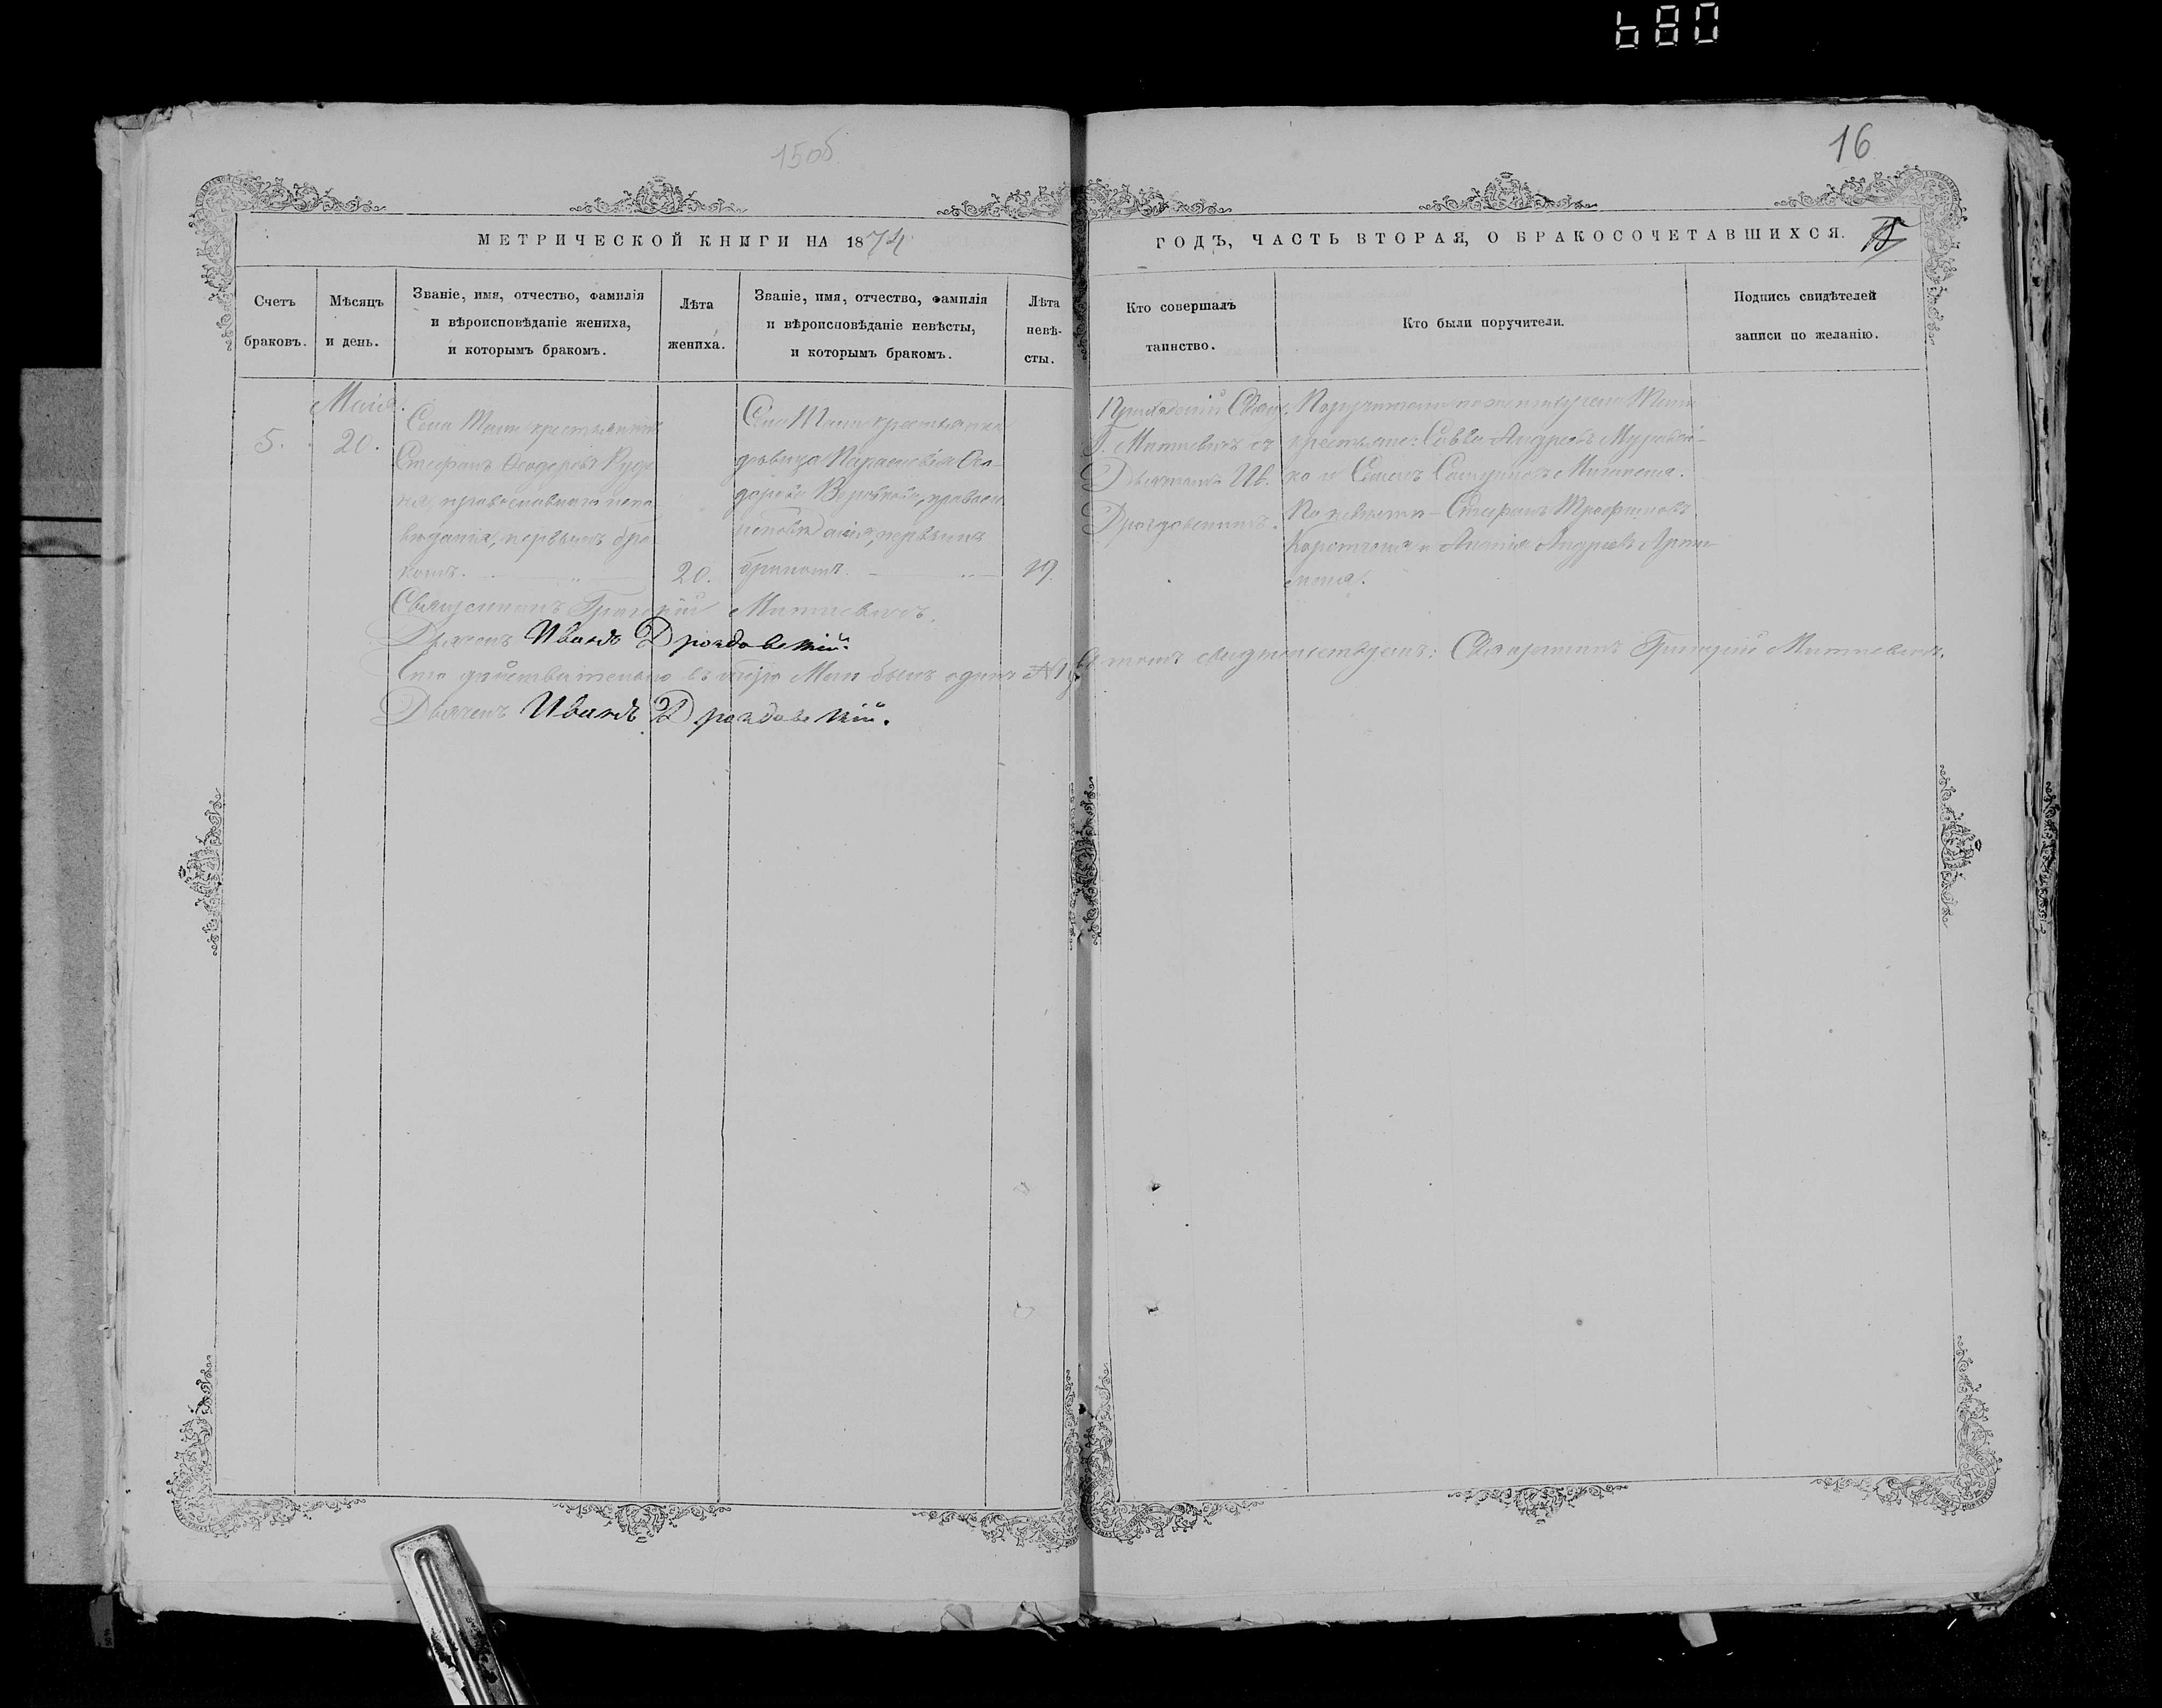 680
15об
16
МЕТРИЧЕСКОЙ КНИГИ НА 1874
ГОДЪ, ЧАСТЬ ВТОРАЯ, О БРАКОСОЧЕТАВШИХСЯ.
15
Счетъ
браковъ.
Мѣсяцъ
и день.
Званіе, имя, отчество, фамилія
и вѣроисповѣданіе жениха,
и которымъ бракомъ.
Лѣта
жениха.
Званіе, имя, отчество, фамилія
и вѣроисповѣданіе невѣсты,
и которымъ бракомъ.
Лѣта
невѣ-
сты.
Кто совершалъ
таинство.
Кто были поручители.
Подпись свидѣтелей
записи по желанію.
5.
Мая.
20.
Села крестьянинъ
Стефанъ Ѳеодоровъ
православнаго испо
вѣданія, первымъ бра
комъ.
20.
Села крестьянка
дѣвица Параскевія Ѳео-
дорова православ
исповѣданія, первымъ
бракомъ.
19.
Приходскій Свящ.
Г. съ
Дьячкомъ Ив.
Дроздовскимъ.
Поручители по женихѣ села
крестьяне: Савва Андреевъ Муравей-
ко и
По невѣстѣ – Стефанъ Трофимовъ
и Ананія Андреевъ
Священникъ Григорій
Дьячекъ Иванъ Дроздовскій.
Что дѣйствительно въ Маѣ былъ одинъ №
въ томъ свидѣтельствуемъ: Священникъ Григорій
Дьячекъ Иванъ Дроздовскій.